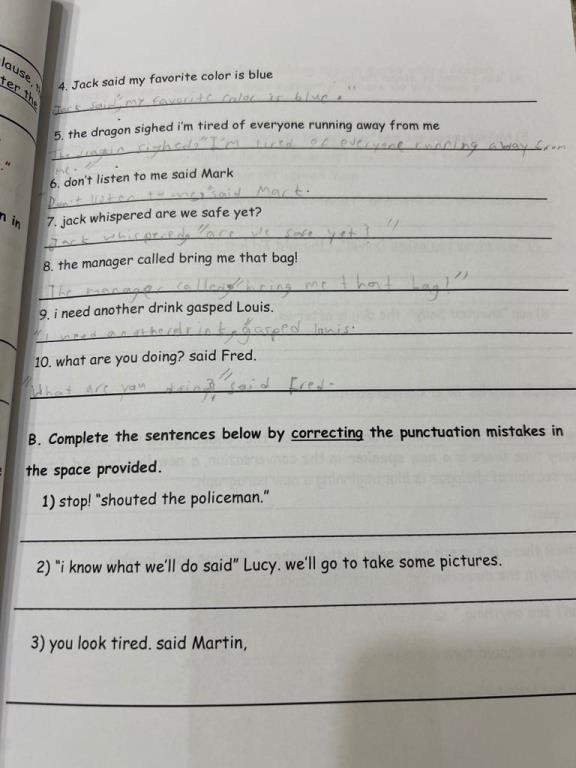 lause,
ter the
4. Jack said my favorite color is blue
Jack said, "my favorite color is blue."
5. the dragon sighed i'm tired of everyone running away from me
The dragon sighed, "I'm tired of everyone running away from
me."
6. don't listen to me said Mark
Don't listen to me," said Mark.
7. jack whispered are we safe yet?
Jack whispered, "are we safe yet?"
n in
8. the manager called bring me that bag!
The manager called, "bring me that bag!"
9. i need another drink gasped Louis.
"I need another drink," gasped Louis.
10. what are you doing? said Fred.
"What are you doing?" said Fred.
B. Complete the sentences below by correcting the punctuation mistakes in
the space provided.
1) stop! "shouted the policeman."
2) "i know what we'll do said" Lucy. we'll go to take some pictures.
3) you look tired. said Martin,